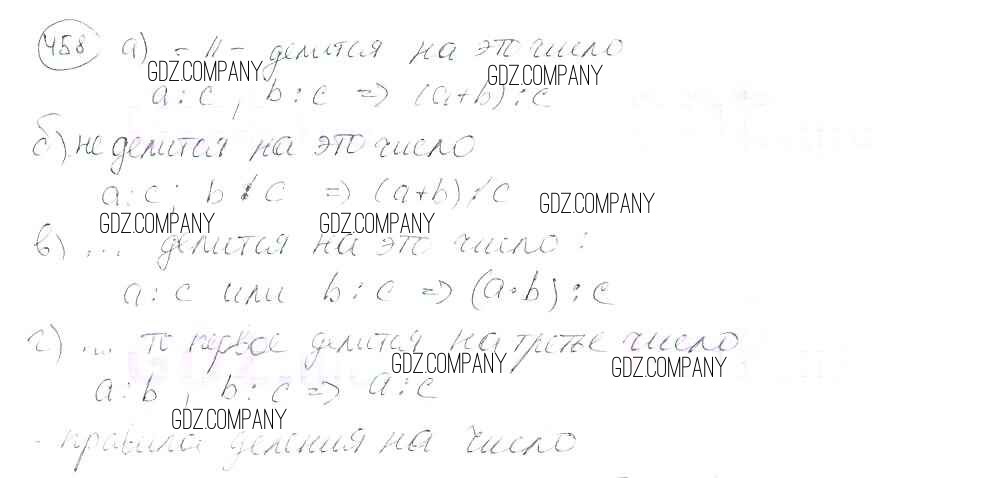 458 а) - " - делится на это число
GDZ.COMPANY GDZ.COMPANY
a ⋮ c, b ⋮ c => (a+b) ⋮ c
б) не делится на это число
a ⋮ c; b ⋮̸ c => (a+b) ⋮̸ c GDZ.COMPANY
GDZ.COMPANY GDZ.COMPANY
в) ... делится на это число:
a ⋮ c или b ⋮ c => (a·b) ⋮ c
г) ... то первое делится на третье число
GDZ.COMPANY GDZ.COMPANY
a ⋮ b, b ⋮ c => a ⋮ c
GDZ.COMPANY
- правила деления на число